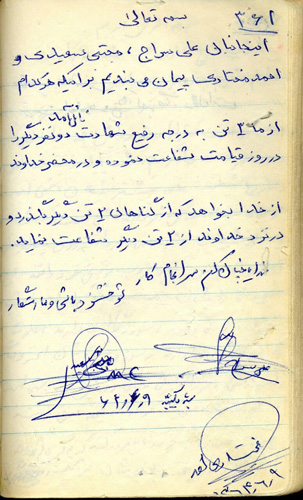 بسمه تعالی
اینجانبان علی سراج، مجتبی سعیدی و
احمد مختاری پیمان می بندیم بر اینکه هر کدام
از ما ۳ تن به درجه رفیع شهادت نائل آمد دو نفر دیگر را
در روز قیامت شفاعت نموده و در محضر خداوند
از خدا بخواهد که از گناهان ۲ تن دیگر بگذرد و
در نزد خداوند از ۲ تن دیگر شفاعت نماید.
خدایا چنان کن سرانجام کار
تو خشنود باشی و ما رستگار
یکشنبه
مختاری احمد